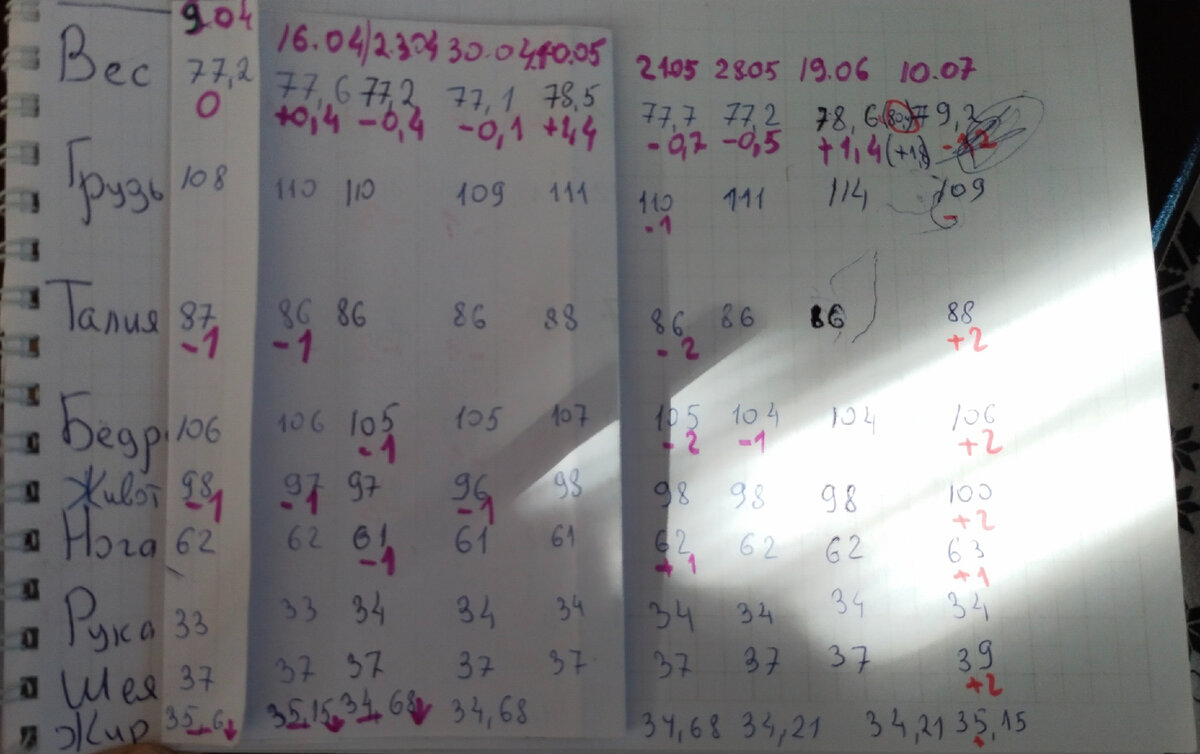 9.04 16.04 23.04 30.04 10.05 21.05 28.05 19.06 10.07
Вес 77,2 77,6 77,2 77,1 78,5 77,7 77,2 78,6 79,2
0 +0,4 -0,4 -0,1 +1,4 -0,7 -0,5 +1,4 (+1,8)
Грудь 108 110 110 109 111 110 111 114 109
-1 -
Талия 87 86 86 86 88 86 86 86 88
-1 -1 -2 +2
Бедр 106 106 105 105 107 105 104 104 106
-1 -2 -1 +2
Живот 98 97 97 96 98 98 98 98 100
-1 -1 -1 +2
Нога 62 62 61 61 61 62 62 62 63
-1 +1 +1
Рука 33 33 34 34 34 34 34 34 34
Шея 37 37 37 37 37 37 37 37 39
+2
Жир 35,6↓ 35,15↓ 34,68↓ 34,68 34,68 34,21 34,21 35,15
+